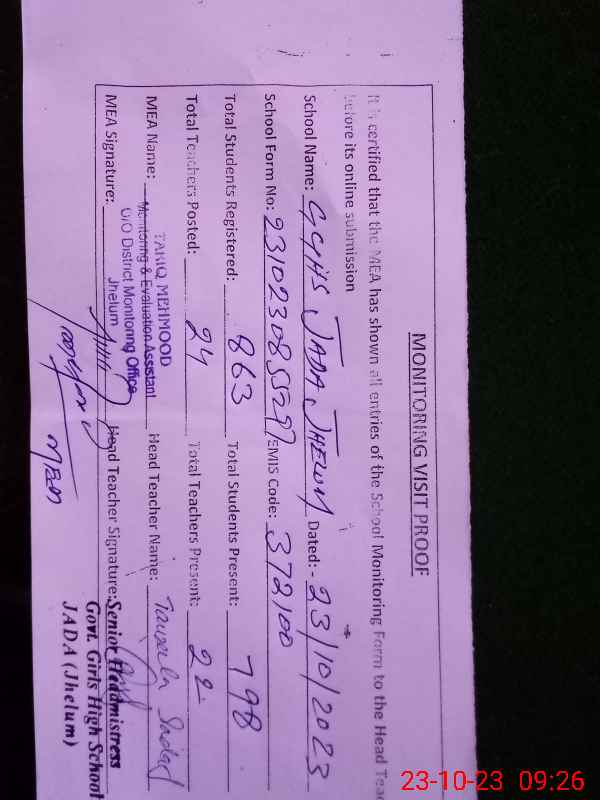 MONITORING VISIT PROOF
It is certified that the MEA has shown all entries of the School Monitoring Form to the Head
before its online submission
School Name: GGHS JADA JHELUM Dated:- 23/10/2023
School Form No: EMIS Code: 372100
Total Students Registered: 863 Total Students Present: 798
Total Teachers Posted: 24 Total Teachers Present: 22
MEA Name: TARIQ MEHMOOD Head Teacher Name:
Monitoring & Evaluation Assistant
O/O District Monitoring Office
Jhelum
MEA Signature: Head Teacher Signature:
Senior Headmistress
Govt. Girls High School
JADA (Jhelum)
23-10-23 09:26